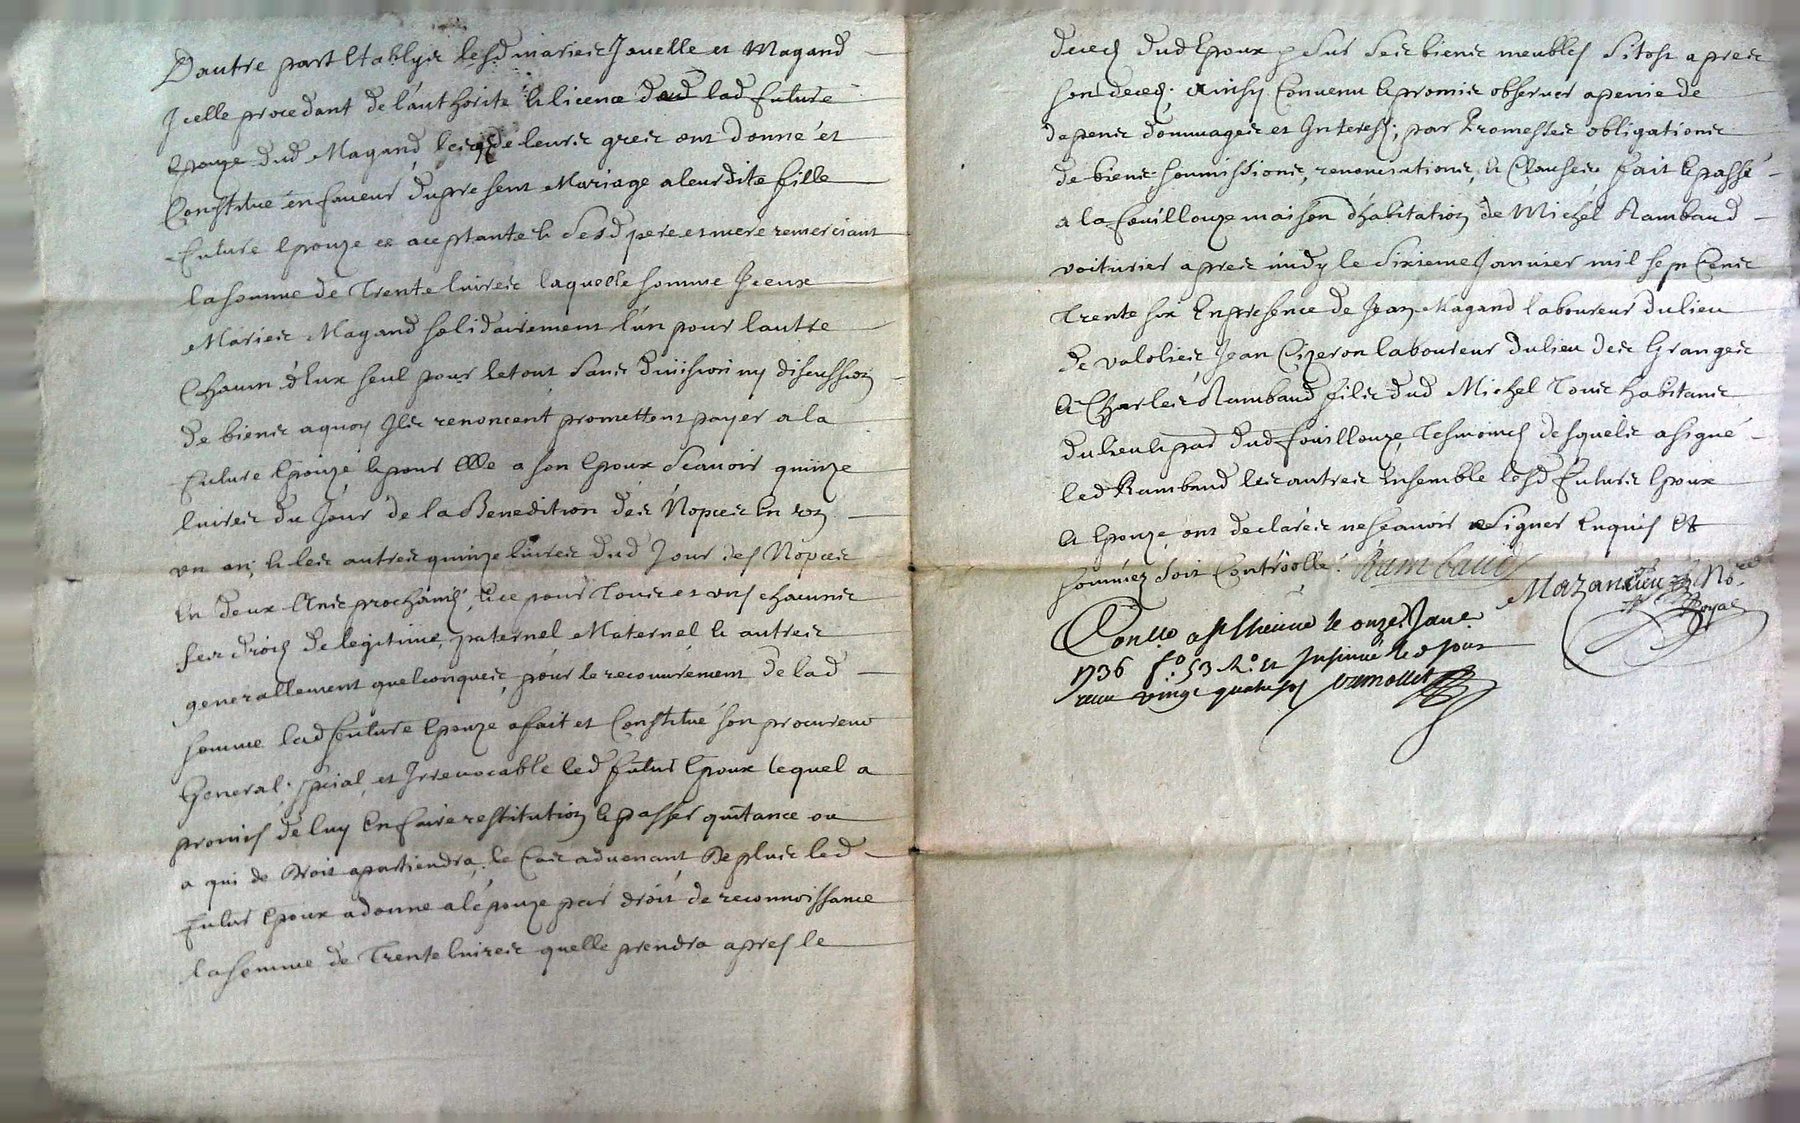 Dautre part Etablys lesd mariez Jouelle et Magand
Icelle procedant de l'authorité & licence dud lad future
Epouze dud Magand, de leurs grez ont donné et
Constitué en faveur du present Mariage a leurdite fille
future Epouze ce aceptante & sesd pere et mere remerciant
la somme de Trente livres laquelle somme Iceux
Mariez Magand solidairement l'un pour lautre
Chacun d'Eux seul pour le tout sans division ny discussion
de biens a quoy Ils renoncent promettent payer a la
future Epouze, & pour Elle a son Epoux scavoir quinze
livres du Jour de la Benedition des Nopces En
un an, & les autres quinze livres dud Jour des Nopces
En deux Ans prochains, & ce pour Tous et uns chacuns
ses droits de legitime, paternel Maternel & autres
generallement quelconques, pour le recouvrement de lad
somme lad future Epouze a fait et Constitué son procureur
General, special, et Irrevocable led futur Epoux lequel a
promis de luy En faire restitution & passer quitance ou
a qui de Droit apartiendra, le Cas advenant De plus led
futur Epoux a donné a lépouze par droit de reconnoissance
la somme de Trente livres quelle prendra apres le
deces dud Epoux sur ses biens meubles sitost apres
son deces. Ainsy Convenu & promis observer a peine de
depens dommages et Interests, par Promesses obligations
de biens, soumissions, renonciations, & Clauses, fait & passé
a la fouillouze maison d'habitation de Michel Rambaud
voiturier apres midy le sixieme Janvier mil sept Cens
trente six En presence de Jean Magand laboureur du lieu
de Jean Cizeron laboureur du lieu des Granges
& Charles Rambaud fils dud Michel Tous habitans
du lieu & par dud fouillouze, Tesmoins desquels a signé
led Rambaud les autres Ensemble lesd futurs Epoux
& Epouze, ont declarés ne scavoir signer Enquis Et
sommez soit Controollé. Rambaud
Mazandieu No.re
Royal
Con.llé a St Etienne le onze Janv.
1736 f.o 53 R.o et Insinué led jour
receu vingt quatre s.